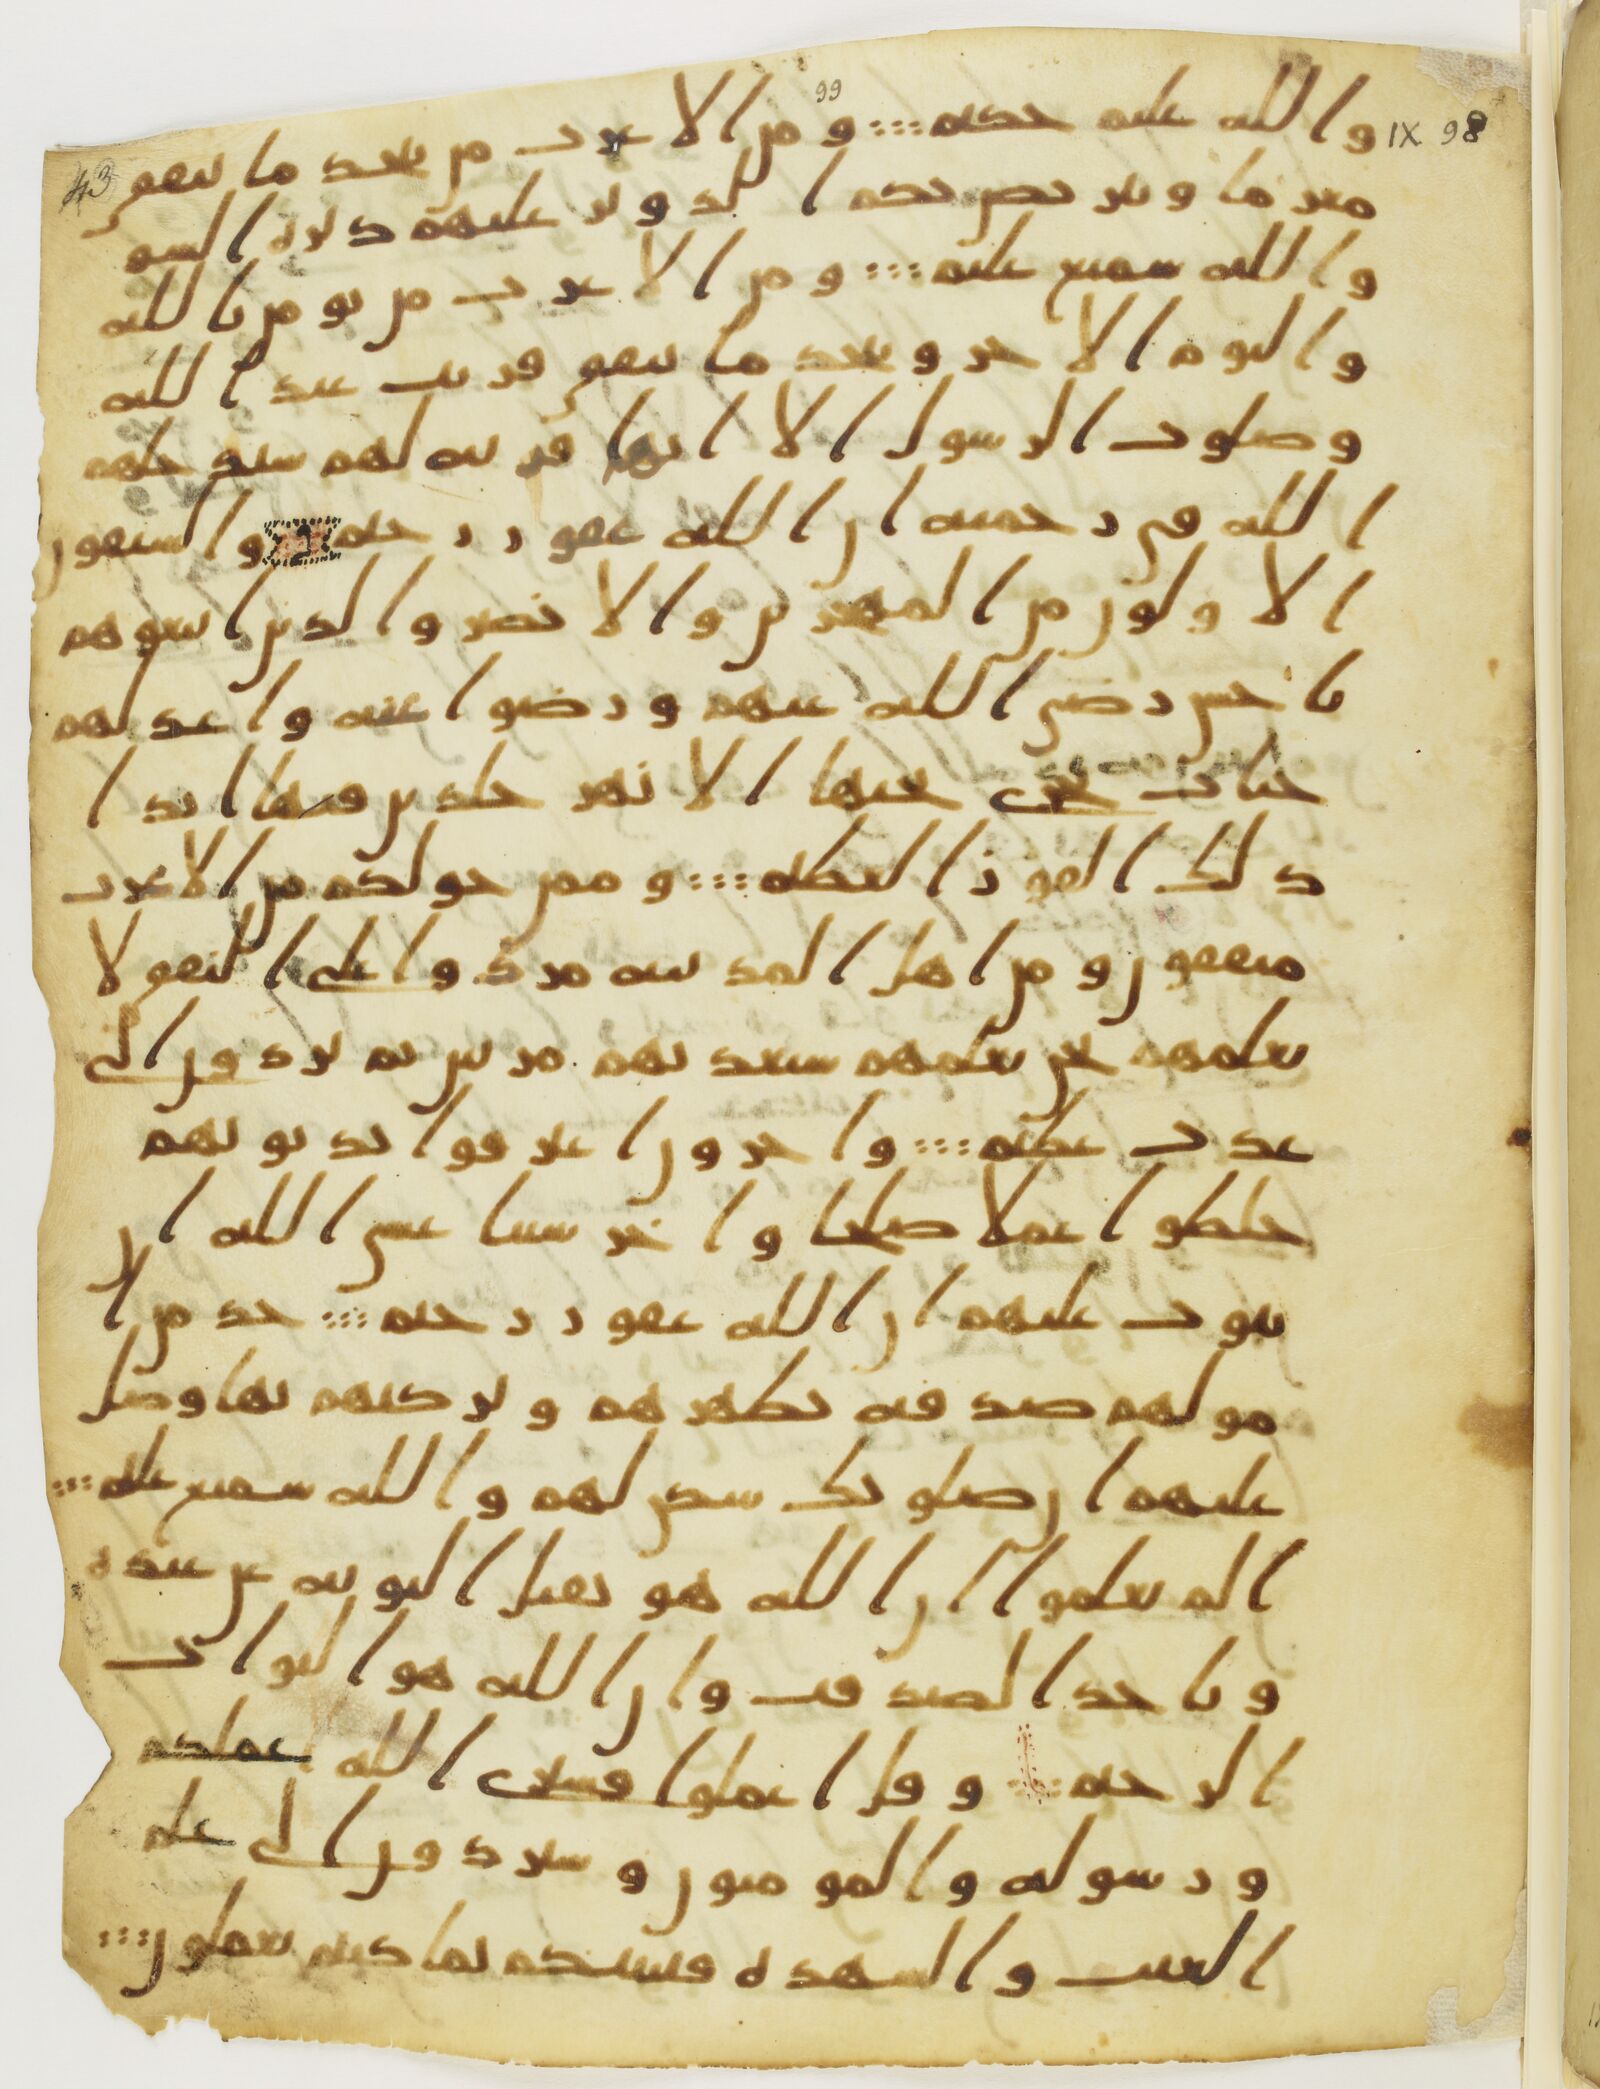 IX 98
99
43
والله عليم حكيم ؞ ومن الاعرب من يتخذ ما ينفق
مغرما ويتربص بكم الدوير عليهم ديره السو
والله سميع عليم ؞ ومن الاعرب من يومن بالله
واليوم الاخر ويتخذ ما ينفق قربت عند الله
وصلوت الرسول الا انها قربه لهم سيدخلهم
الله في رحمته ان الله غفور رحيم والسبقون
الاولون من المهجرين والانصر والذين اتبعوهم
باحسن رضي الله عنهم ورضوا عنه واعد لهم
جنات تجري تحتها الانهر خلدين فيها ابدا
ذلك الفوز العظيم ؞ وممن حولكم من الاعرب
منفقون ومن اهل المدينه مردوا على النفق لا
تعلمهم نحن نعلمهم سنعذبهم مرتين ثم يردون الى
عذب عظيم ؞ واخرون اعترفوا بذنوبهم
خلطوا عملا صلحا واخر سيا عسى الله ان
يتوب عليهم ان الله غفور رحيم ؞ خذ من ا
مولهم صدقه تطهرهم وتزكيهم بها وصل
عليهم ان صلوتك سكن لهم والله سميع عليم ؞
الم يعلموا ان الله هو يقبل التوبه عن عبده
وياخذ الصدقت وان الله هو التواب
الرحيم ؞ وقل اعملوا فسيرى الله عملكم
ورسوله والمومنون وستردون الى علم
الغيب والشهده فينبيكم بما كنتم تعملون ؞